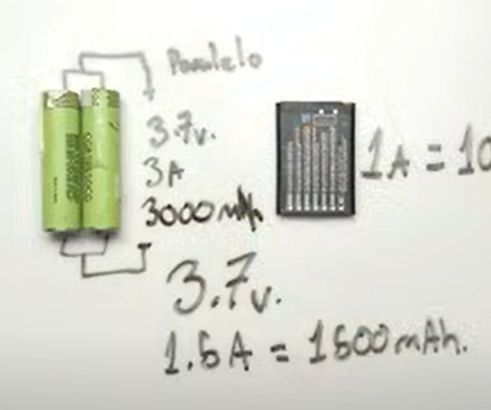 Paralelo
3.7v.
3A
3000 mAh
1A = 10
3.7v.
1.5A = 1500mAh.